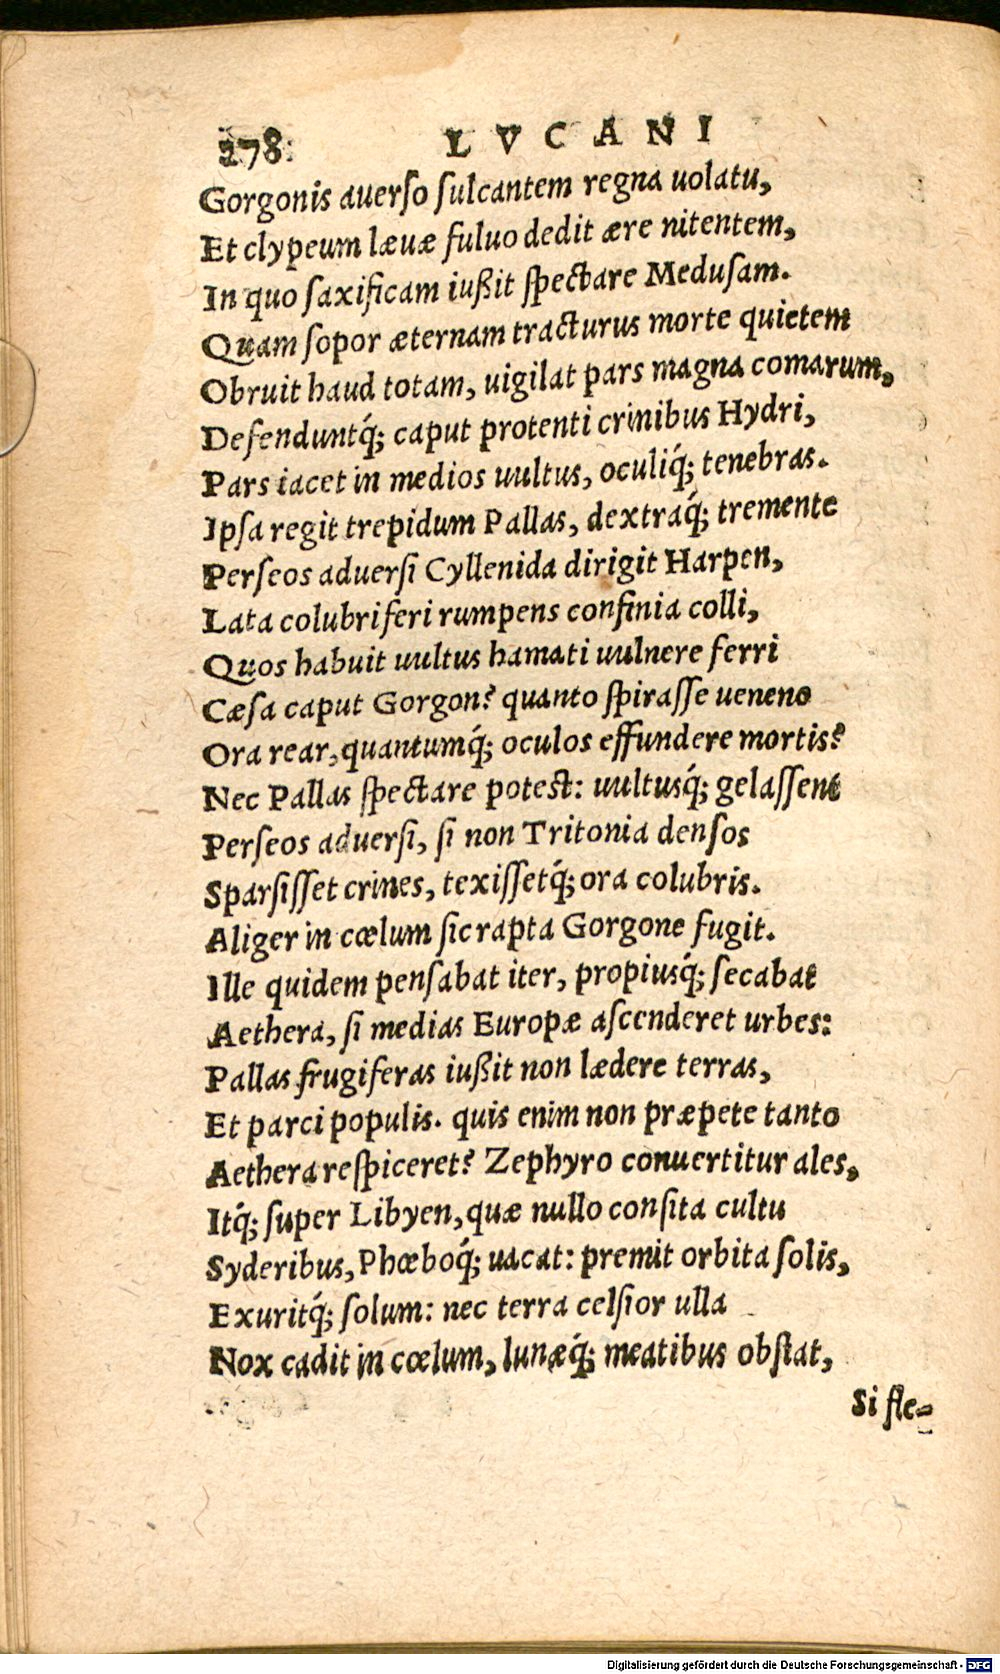 278. LVCANI
Gorgonis auerso ſulcantem regna uolatu,
Et clypeum læuæ fuluo dedit ære nitentem,
In quo ſaxificam iußit ſpectare Meduſam.
Quam ſopor æternam tracturus morte quietem
Obruit haud totam, uigilat pars magna comarum,
Defenduntq́; caput protenti crinibus Hydri,
Pars iacet in medios uultus, oculiq́; tenebras.
Ipſa regit trepidum Pallas, dextraq́; tremente
Perſeos aduerſi Cyllenida dirigit Harpen,
Lata colubriferi rumpens confinia colli,
Quos habuit uultus hamati uulnere ferri
Cæſa caput Gorgon? quanto ſpiraſſe ueneno
Ora rear, quantumq́; oculos effundere mortis?
Nec Pallas ſpectare poteſt: uultusq́; gelaſſent
Perſeos aduerſi, ſi non Tritonia denſos
Sparſiſſet crines, texiſſetq́; ora colubris.
Aliger in cœlum ſic rapta Gorgone fugit.
Ille quidem penſabat iter, propiusq́; ſecabat
Aethera, ſi medias Europæ aſcenderet urbes:
Pallas frugiferas iußit non lædere terras,
Et parci populis. quis enim non præpete tanto
Aethera reſpiceret? Zephyro conuertitur ales,
Itq́; ſuper Libyen, quæ nullo conſita cultu
Syderibus, Phœboq́; uacat: premit orbita ſolis,
Exuritq́; ſolum: nec terra celſior ulla
Nox cadit in cœlum, lunæq́; meatibus obſtat,
Si fle-
Digitalisierung gefördert durch die Deutsche Forschungsgemeinschaft - DFG